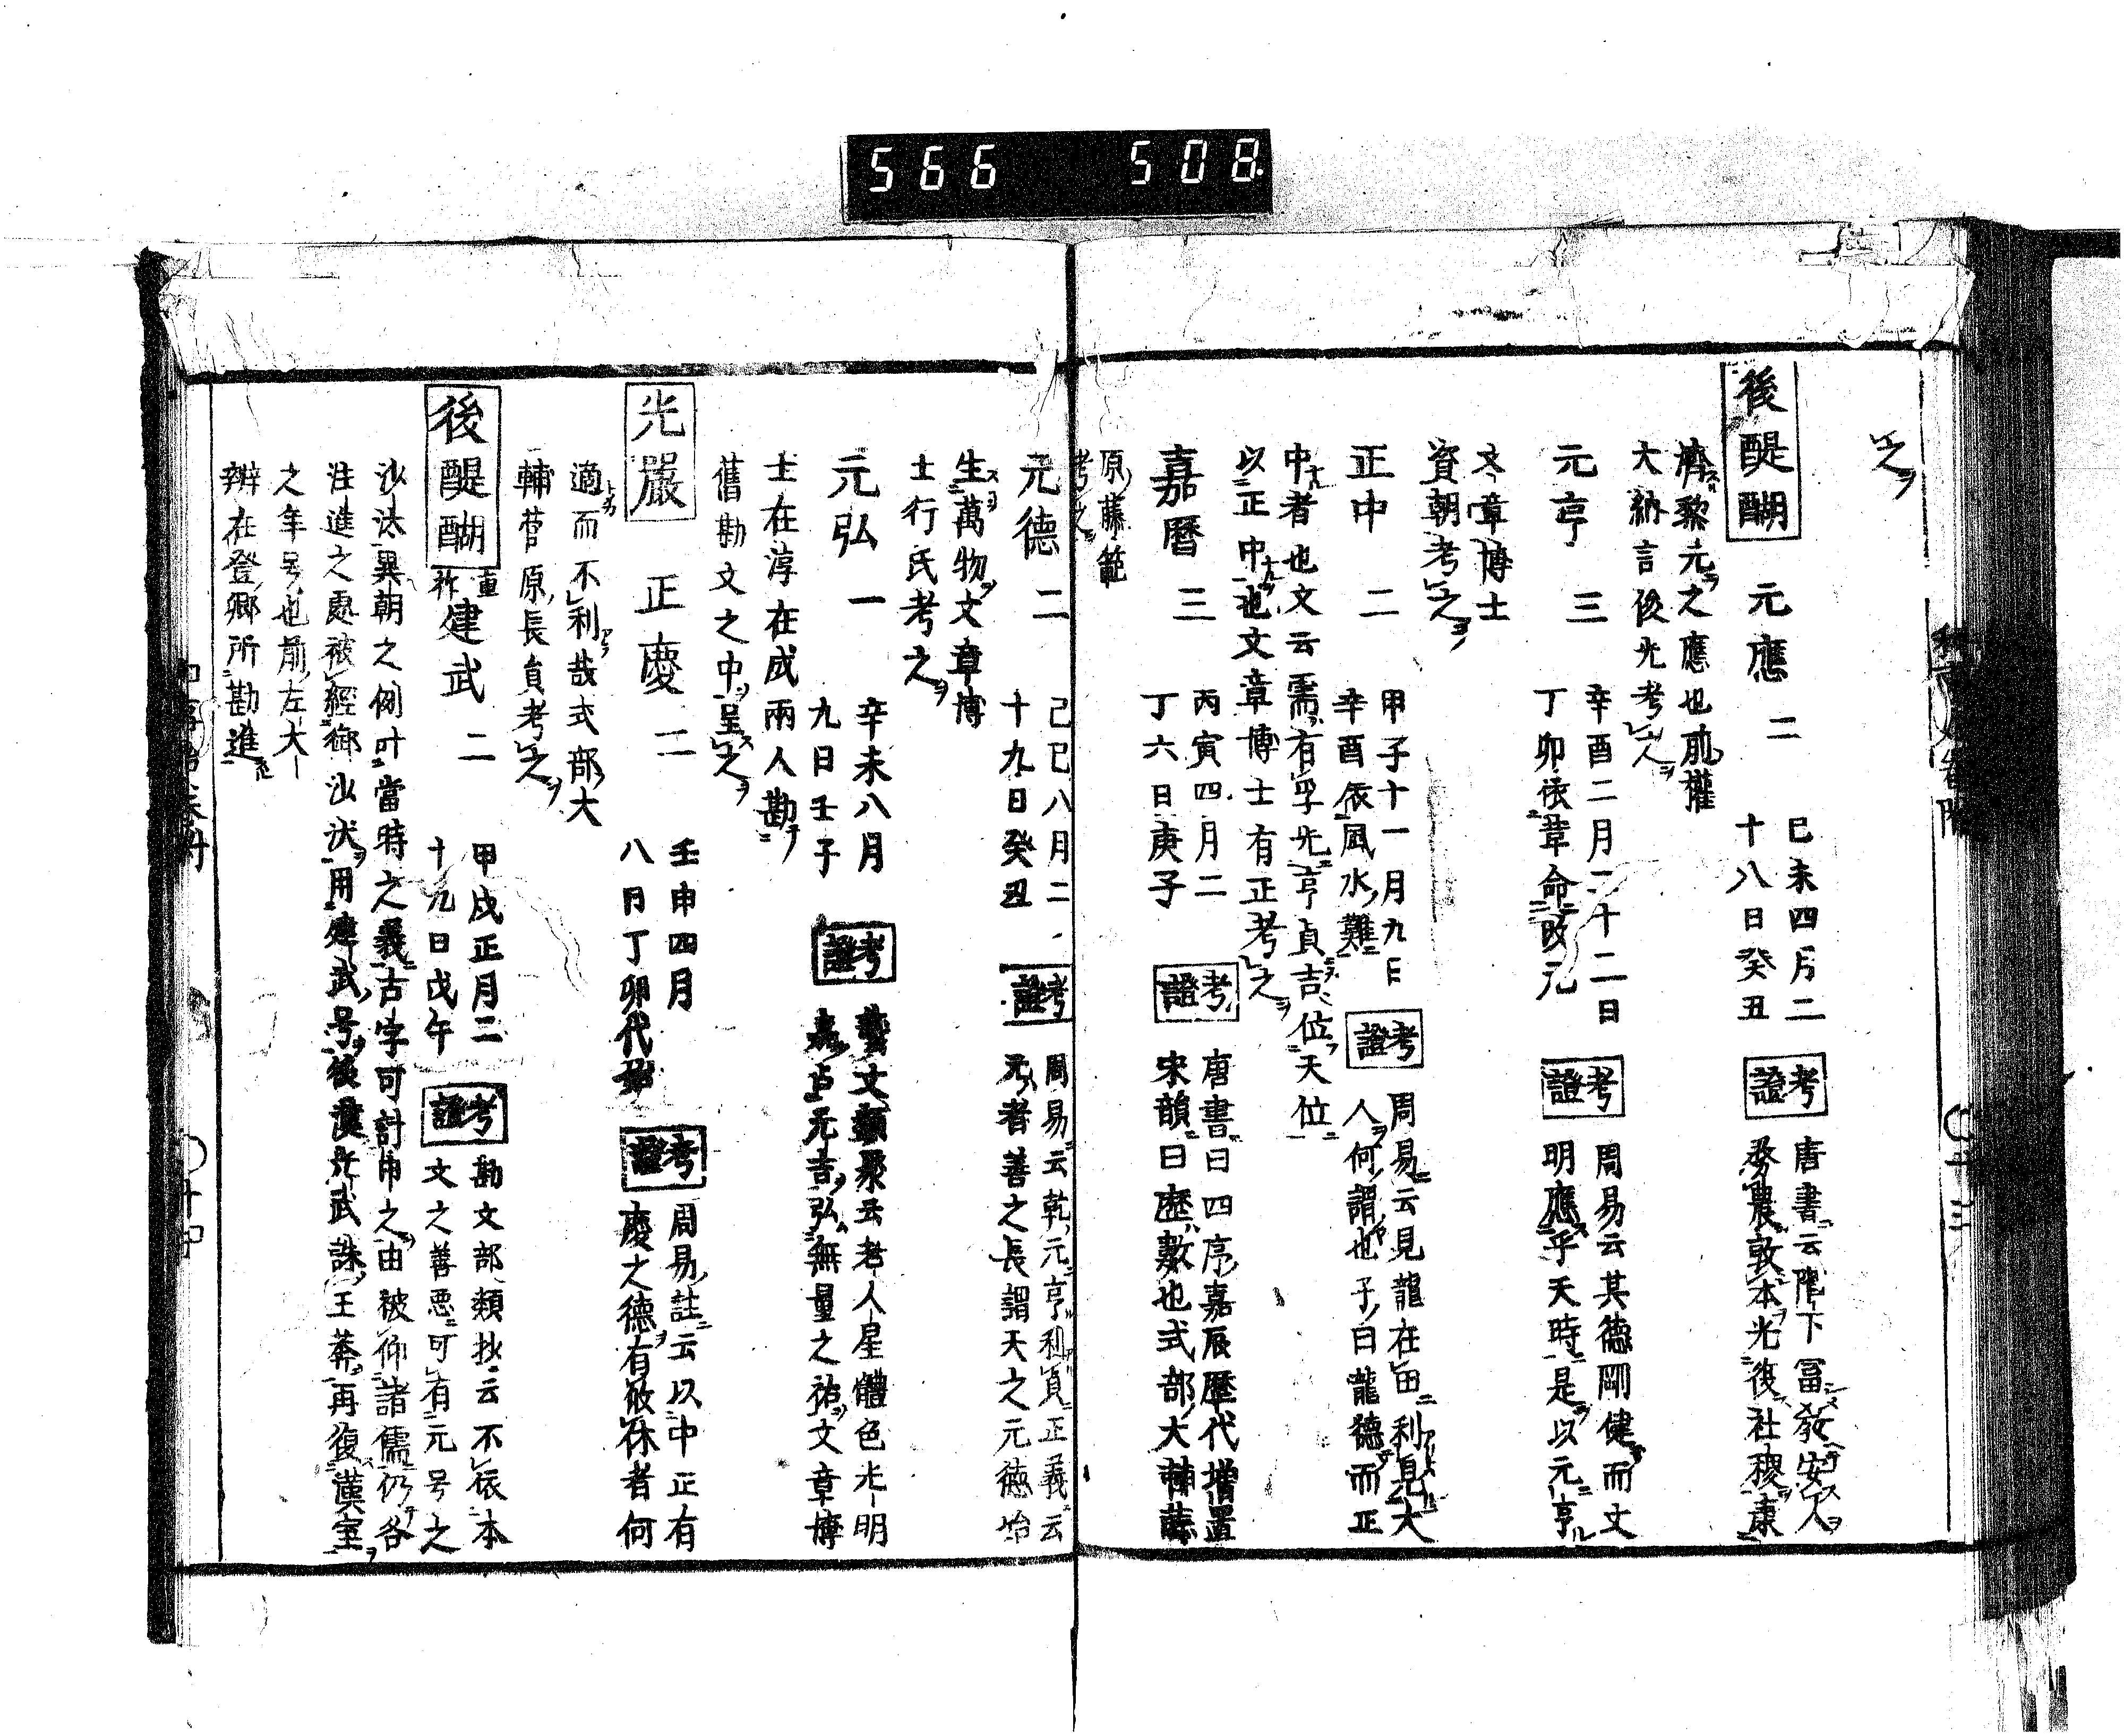 566 508.
之ヲ
後醍醐 元應 二
己未四月二
十八日癸丑
考證
唐書云陛下富教安人
務農敦本光復社稷康
濟黎元之應也前權
大納言俊光考之
元亨 三
辛酉二月二十二日
丁卯依革命改元
考證
周易云其德剛健而文
明應乎天時是以元亨
文章博士
資朝考之
正中 二
甲子十一月九日
辛酉依風水難
考證
周易云見龍在田利見大
人何謂也子曰龍德而正
中者也文云需有孚光亨貞吉位天位
以正中也文章博士有正考之
嘉曆 三
丙寅四月二
丁六日庚子
考證
唐書曰四序嘉辰歷代增置
宋韻曰歷數也式部大輔藤
原藤範
考之
元德 二
己巳八月二
十九日癸丑
考證
周易云乾元亨利貞正義云
元者善之長謂天之元德始
生萬物文章博
士行氏考之
元弘 一
辛未八月
九日壬子
考證
藝文類聚云老人星體色光明
嘉占元吉弘無量之祐文章博
士在淳在成兩人勘
舊勘文之中呈之
光嚴 正慶 二
壬申四月
八日丁卯代始
考證
周易註云以中正有
慶之德有攸休者何
適而不利哉式部大
輔菅原長員考之
後醍醐 重祚 建武 二
甲戌正月二
十九日戊午
考證
勘文部類抄云不依本
文之善悪可有元号之
沙汰異朝之例叶當時之義古字可計申之由被仰諸儒仍各
注進之處被經御沙汰用建武号後漢光武誅王莽再復漢室
之年号也前左大
辨在登卿所勘進